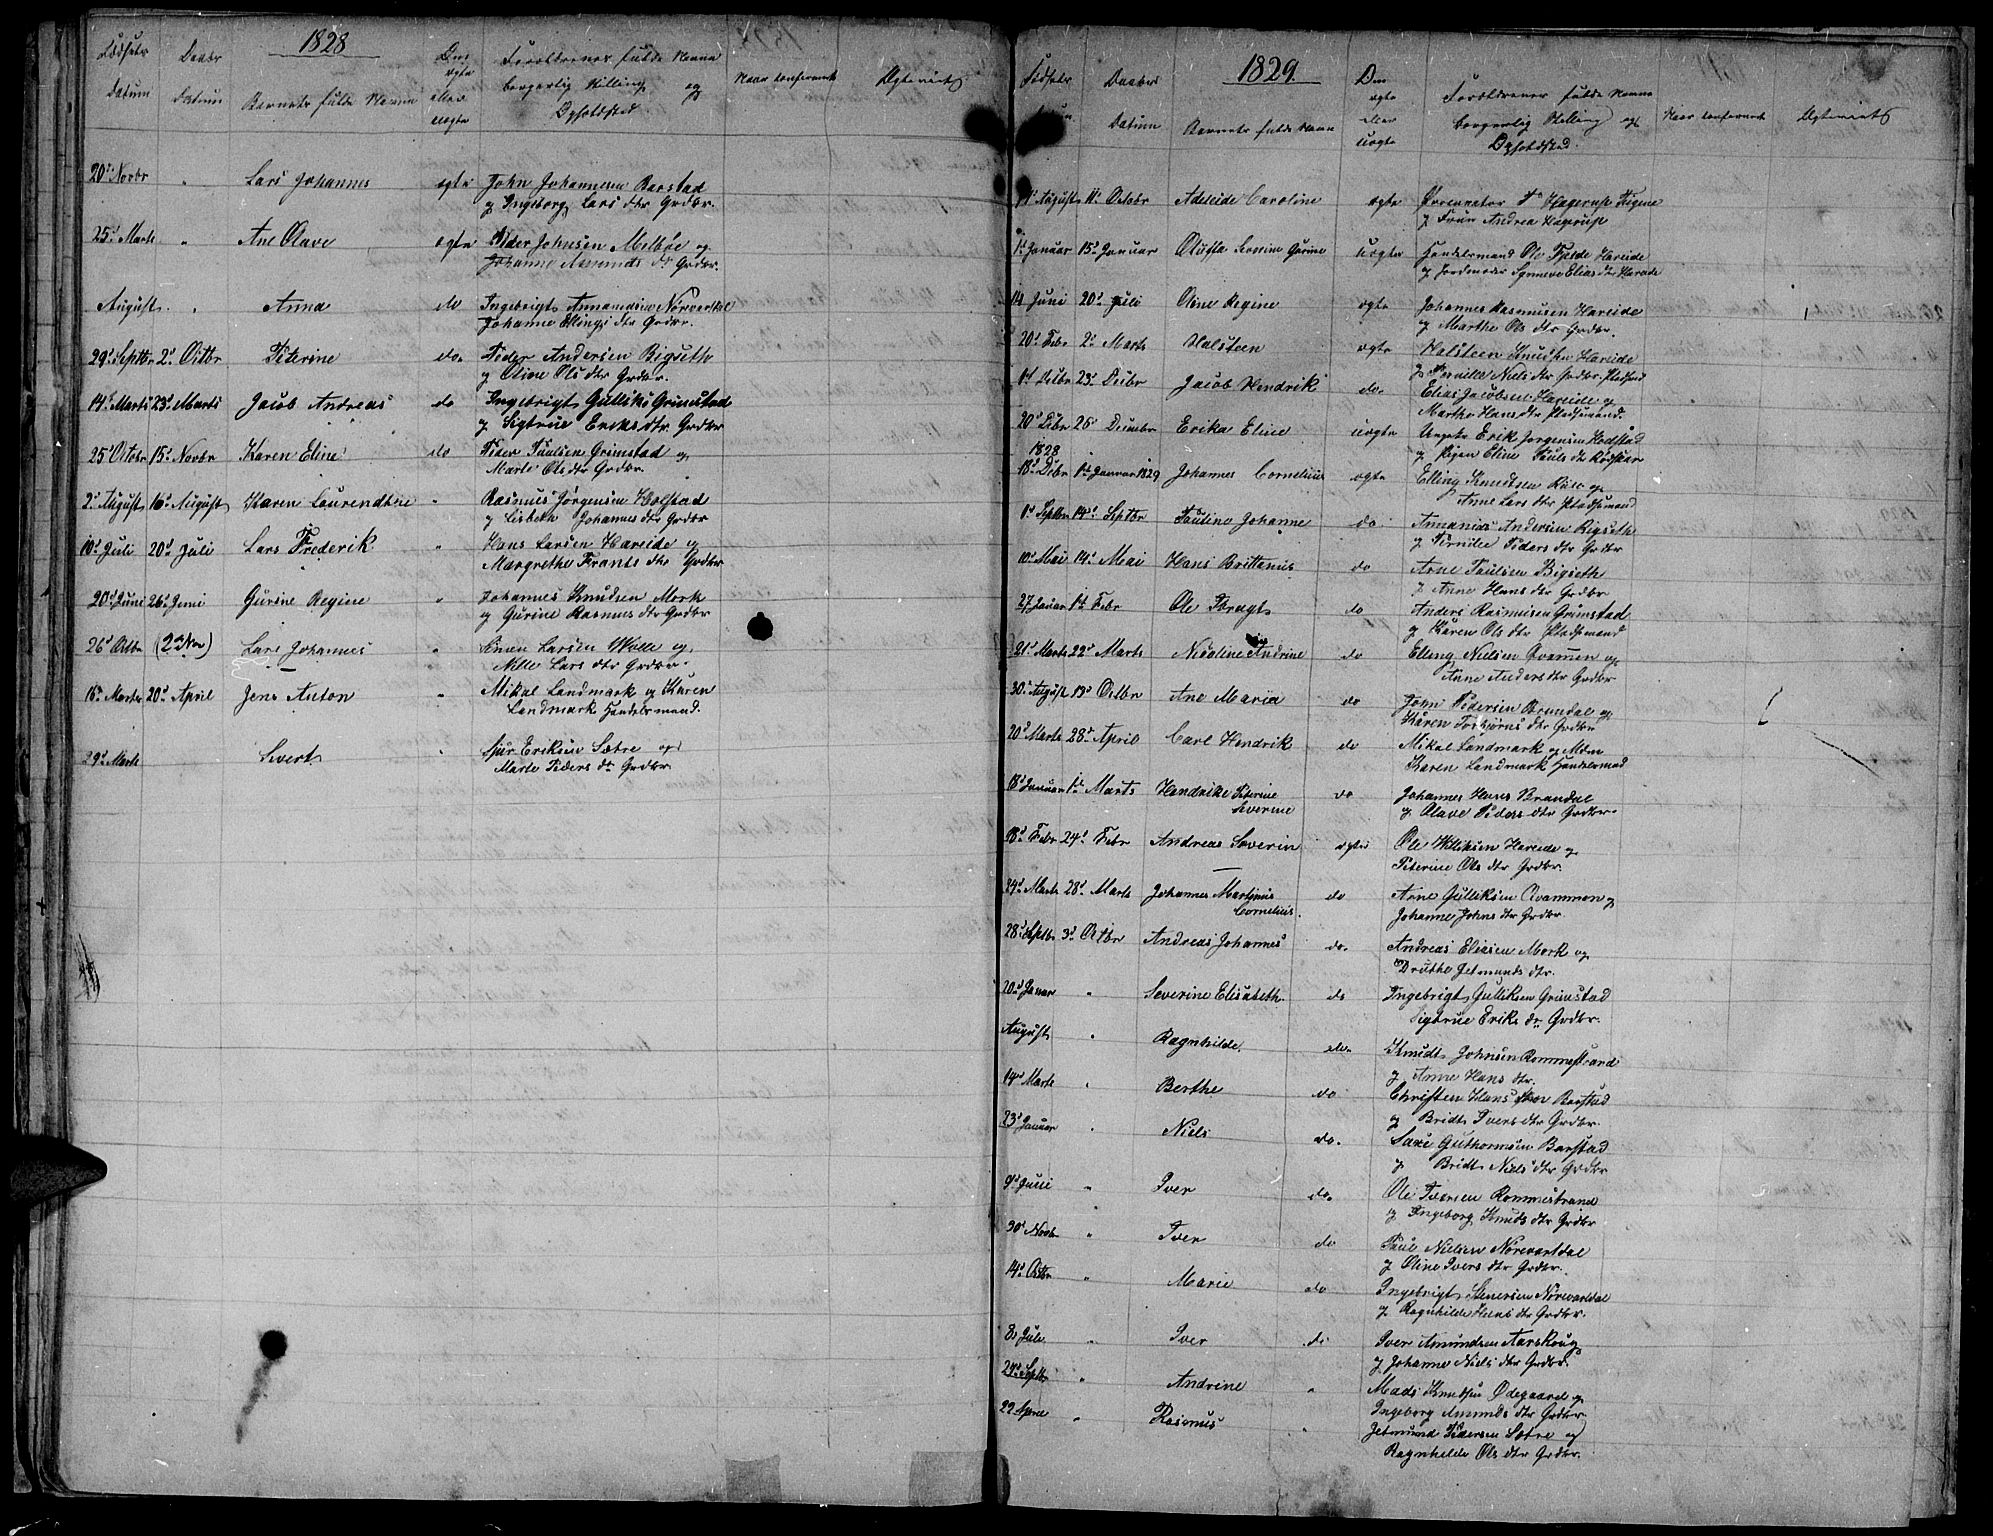 1828
Fødsels Datum
Daabs Datum
Barnets fulde Navn
Om ægte eller uægte
Forældrenes fulde Navne
borgerlig Stilling og
Opholdsted.
Naar confirmeret
Ægteviet
20de Novbr " Lars Johannes ægte John Johannesen Barstad
og Ingeborg Lars dtr Grdbr.
25d Marts " Ane Olave ægte Peder Johnsen Melsøe og
Johanne Asmunds dr Grdbr.
August " Anna do Ingebrigt Annaniasen Nørvartdal
Johanne Ellings dtr Grdbr.
29d Septbr 2d Octbr Peterine do. Peder Andersen Bigseth
og Oline Ols dtr Grdbr.
14d Marts 23d Marts Jacob Andreas do Ingebrigt Gulliks Grimstad
og Sigtrue Eriks dtr Grdbr
25d Octbr 15d Novbr Karen Eline do Peder Paulsen Grimstad og
Marte Ols dtr Grdbr.
2d August 16d August Karen Laurendtine " Rasmus Jørgensen Holstad
og Lisbeth Johannes dtr Grdbr
10d Juli 20d Juli Lars Frederik " Hans Larsen Hareide og
Margrethe Frants dtr Grdbr
20d Juni 26d Juni Gurine Regine " Johannes Knudsen Mork
og Gurine Rasmus dtr Grdbr
26d Octbr (2d Nov) Lars Johannes " Larsen og
Lars dtr Grdbr.
16d Marts 20d April Jens Anton " Mikal Landmark og Karen
Landmark Handelsmand.
29d Marts Sivert " Sjur Eriksen Sætre og
Marte Peders dr Grdbr
1829.
Fødsels
Daabs Datum
Barnets fulde Navn
Om ægte eller uægte
Forældrenes fulde Navne
borgerlig Stilling og
Opholdstad.
Naar confirmeret
Ægteviet
August 11d Octbr Adeleide Caroline ægte Hagerup
og Fru Andrea Hagerup
1d Januar 15d Januar Olufta Severine Gurine uægte Handelsmand Ole Hareide
og Jordmoder Synneve Elias dtr Hareide
14 Juni 20d Juli Oline Regine ægte Johannes Rasmusen Hareide
og Marthe Ols dtr Grdbr.
20d Febr 2d Marts Halsteen ægte Halsteen Knudsen Hareide
og Pernille Niels dtr Grdbr. Pladsmd
1d Decbr 23d Decbr Jacob Hendrik do. Elias Jacobsen Hareide og
Marthe Hans dtr Pladsmand.
20d Debr 26d Decembr Erika Eline uægte Ungkr Erik Jørgensen Holstad
og Pigen Eline Pauls dtr Rødskar
1828
18d Debr 1d Januar 1829 Johannes Cornelius ægte Elling Knudsen og
Anne Lars dtr Pladsmand
1d Septbr 14d Septbr Pauline Johanne do Annanias Andersen Bigseth
og Pernilee Peders dtr Grdbr
10d Mai 14d Mai Hans Brittanus do Arne Paulsen Bigseth
og Anne Hans dtr Grdbr
27 Januar 1d Febr Ole Bragt do Anders Rasmusen Grimstad
og Karen Ols dtr Pladsmand
21d Marts 22d Marts Nicoline Andrine do Elling Nielsen Qvammen og
Anne Anders dtr Grdbr
30d August 13d Octbr Ane Maria do John Pedersen Brandal og
Karen Torbjørns dtr Grdbr
20d Marts 28d April Carl Hendrik do Mikal Landmark og Mdm
Karen Landmark Handelsmad
18d Januar 1d Marts Hendrike Peterine
Severine do Johannes Hans Brandal
og Olave Peders dtr Grdbr.
18d Febr 24d Febr Andreas Severin ægte Ole Hareide og
Peterine Ols dtr Grdbr.
24d Marts 28d Marts Johannes Martinus
Cornelius. do Arne Gulliksen Qvammen og
Johanne Johns dtr Grdbr.
28d Septbr 3d Octbr Andreas Johannes do. Andreas Eliesen Mork og
Druthe Jetmunds dtr.
20d Januar " Severine Elisabeth. do Ingebrigt Gulliksen Grimstad
Sigtrue Eriks dr Grdbr.
August " Ragnhilde. do. Knudt Johnsen Rommestrand
og Anne Hans dtr.
14d Marts " Berthe do Christen Hans Barstad
og Bridt Ivers dtr Grdbr.
23d Januar " Niels do. Saxe Guthormsen Barstad
og Bridt Niels dtr Grdbr
9d Juni " Iver do. Ole Iversen Rommestrand
og Ingeborg Knuds dtr Grdbr
30d Novbr " Iver do Paul Nielsen Nørevartdal
og Oline Ivers dtr Grdbr.
14d Octbr " Marie do Ingebrigt Stenersen Nørvartdal
og Ragnhilde Hans dtr Grdbr.
8d Juli " Iver do Iver Amundsen Aarskoug
og Johanne Niels dtr Grdbr.
29d Septbr " Andrine " Mads Knudsen Ødegaard og
Ingeborg Amunds dtr Grdbr
22 April " Rasmus " Jetmund Pedersen Sætre og
Ragnhilde Ols dtr Grdbr.